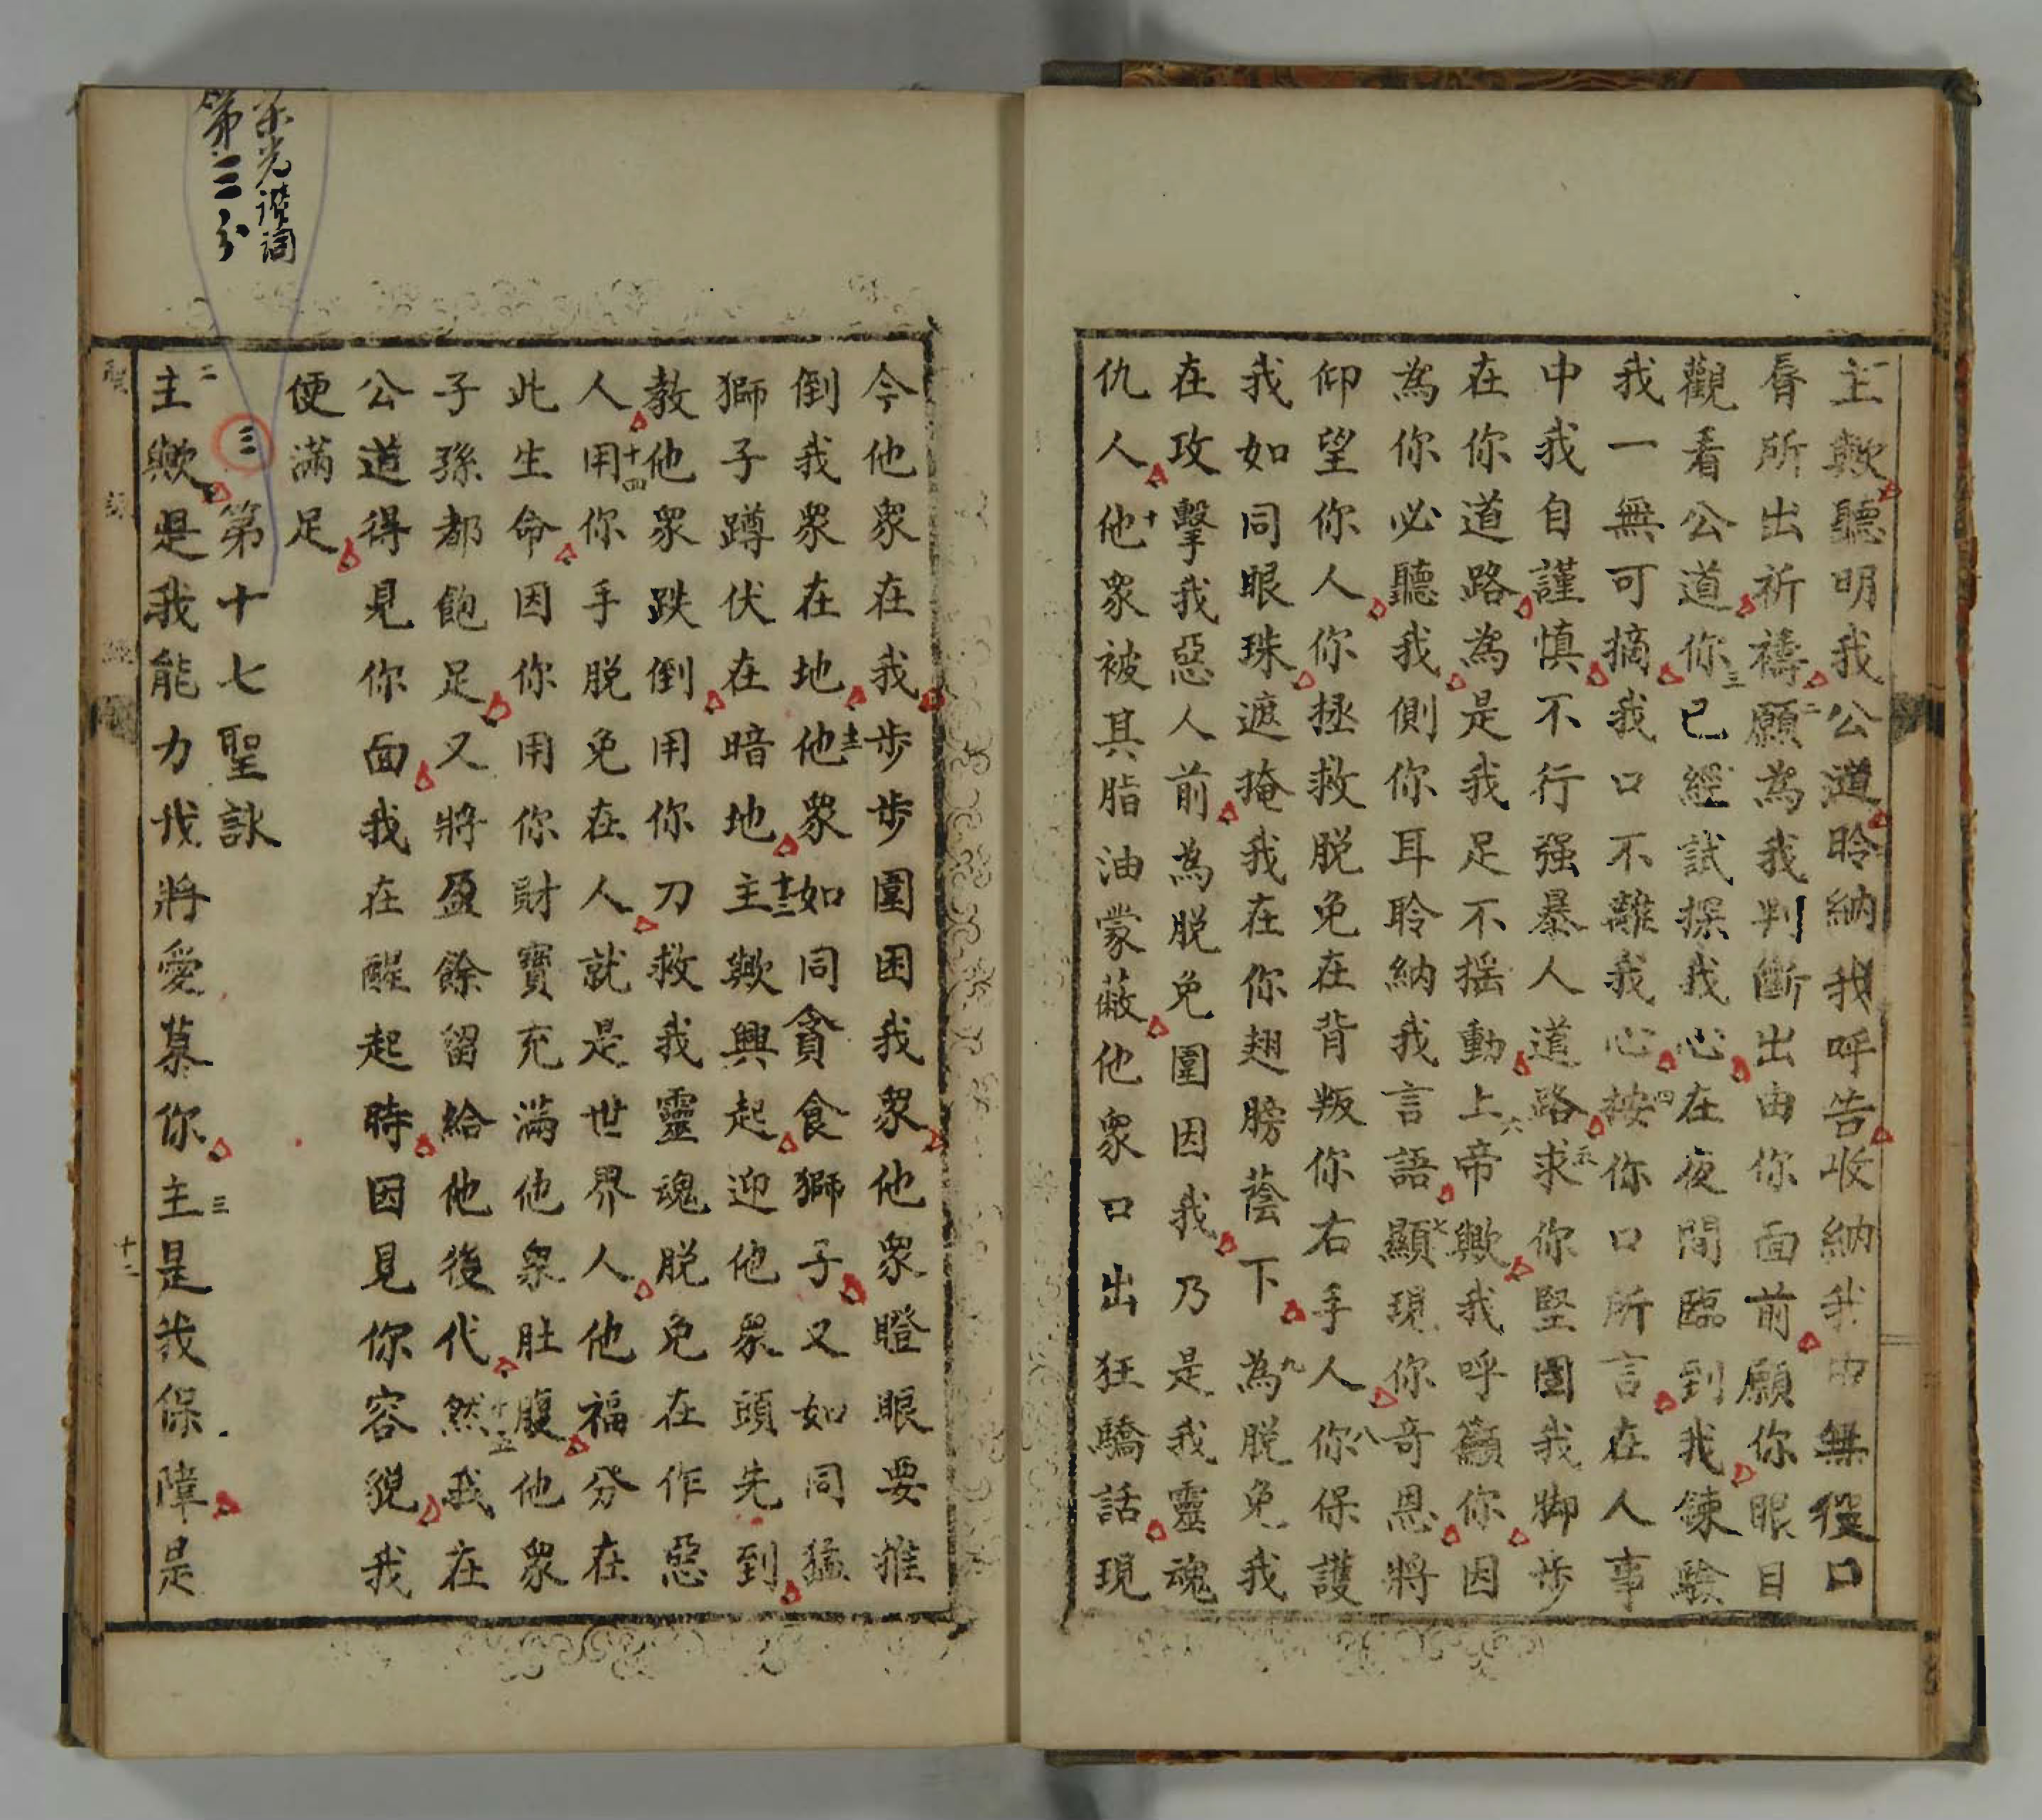 主歟聽明我公道聆納我呼告收納我由無㣲口
脣所出祈禱二願為我判斷出由你面前願你眼目
觀看公道你三已經試探我心在夜間臨到我鍊驗
我一無可摘我口不離我心四按你口所言在人事
中我自謹慎不行强暴人道路五求你堅固我脚步
在你道路為是我足不揺動六上帝歟我呼籲你因
為你必聽我側你耳聆納我言語七顯現你奇恩將
仰望你人你拯救脱免在背叛你右手人八你保護
我如同眼珠遮掩我在你翅膀蔭下九為脱免我
在攻擊我惡人前為脱免圍因我乃是我靈魂
仇人十他衆被其脂油蒙蔽他衆口出狂驕話現
今他衆在我步步圍困我衆他衆瞪眼要推
倒我衆在地十二他衆如同貪食獅子又如同猛
獅子蹲伏在暗地十三主歟興起迎他衆頭先到
教他衆跌倒用你刀救我靈魂脱免在作惡
人十四用你手脱免在人就是世界人他福分在
此生命因你用你財寶充滿他衆肚腹他衆
子孫都飽足又將盈餘留給他後代十五然我在
公道得見你面我在醒起時因見你容貌我
便滿足
榮光讚詞
第三分
三 第十七聖詠
二主歟是我能力我將愛慕你三主是我保障是
聖詠經
十二